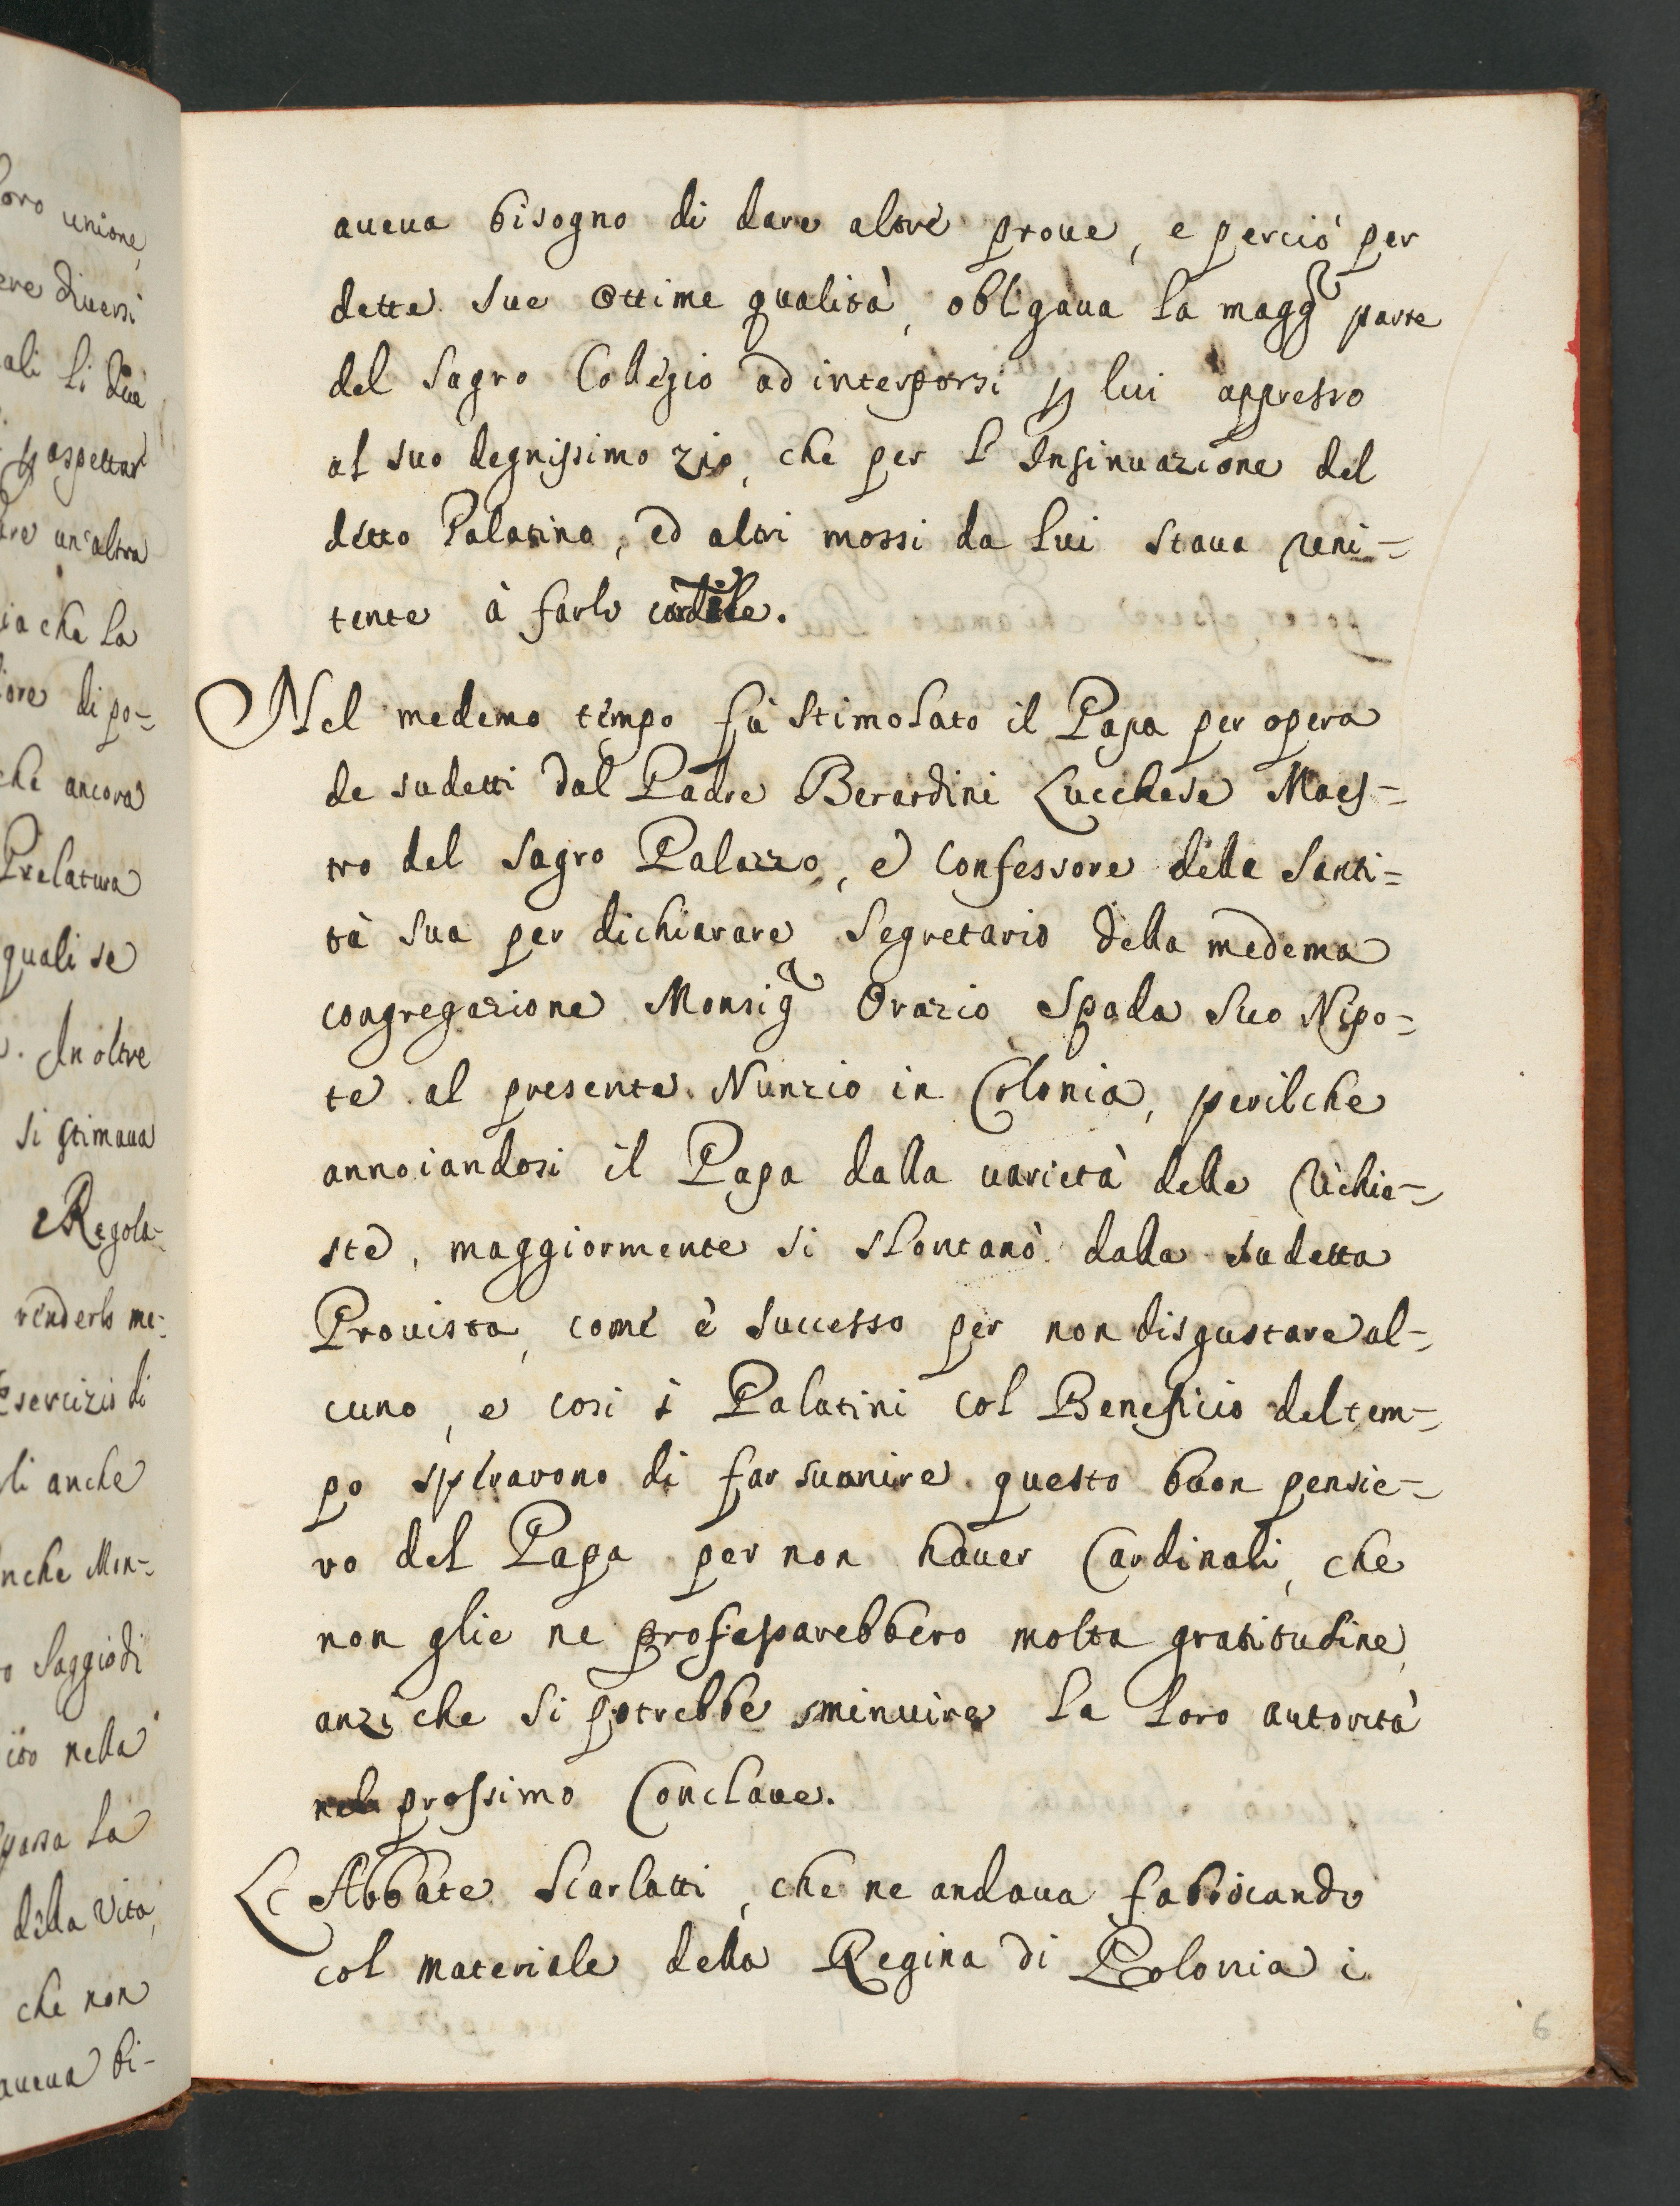 oro unione,
ere diuersi
ali li due
ꝑ aspettar
are un'altra
ia che la
iore di po=
che ancora
Prelatura
quali se
. In oltre
si stimaua
e Regola=
renderlo me=
Esercizio di
li anche
nche Mon=
o saggio di
ito nella
passa la
della vita,
che non
aueua bi-
aueua bisogno di dare altre proue, e perciò per
dette sue ottime qualità, obligaua la magg.r parte
del Sagro Collegio ad interporsi ꝑ lui appresso
al suo degnissimo zio, che per l'Insinuazione del
detto Palatino, ed altri mossi da lui staua reni=
tente à farlo cardile.
Nel medemo tempo fù stimolato il Papa per opera
de sudetti dal Padre Berardini Lucchese Maes=
tro del Sagro Palazzo, e Confessore della Santi=
tà sua per dichiarare Segretario della medema
congregazione Monsig.r Orazio Spada suo Nipo=
te al presente Nunzio in Colonia, perilche
annoiandosi il Papa dalla uarietà delle richie=
ste, maggiormente si slontanò dalla sudetta
Prouista, come è successo per non disgustare al=
cuno, e cosi i Palatini col Beneficio del tem=
po sperarono di far suanire questo buon pensie=
ro del Papa per non hauer Cardinali, che
non glie ne professarebbero molta gratitudine,
anzi che si potrebbe sminuire la loro autorità
nel prossimo Conclaue.
L'Abbate Scarlatti, che ne andaua fabricando
col materiale della Regina di Polonia i
6